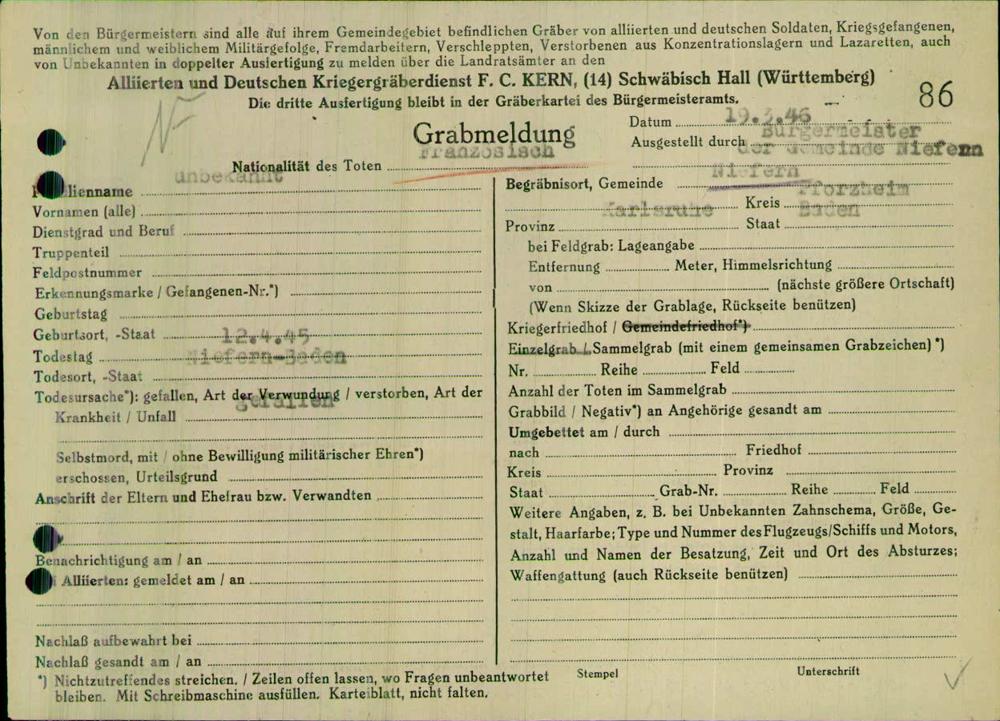 Von den Bürgermeistern sind alle auf ihrem Gemeindegebiet befindlichen Gräber von alliierten und deutschen Soldaten, Kriegsgefangenen,
männlichem und weiblichem Militärgefolge, Fremdarbeitern, Verschleppten, Verstorbenen aus Konzentrationslagern und Lazaretten, auch
von Unbekannten in doppelter Ausfertigung zu melden über die Landratsämter an den
Alliierten und Deutschen Kriegergräberdienst F. C. KERN, (14) Schwäbisch Hall (Württemberg)
Die dritte Ausfertigung bleibt in der Gräberkartei des Bürgermeisteramts.
86
Grabmeldung
Datum 19.3.46
Ausgestellt durch Bürgermeister
der Gemeinde Niefenn
Nationalität des Toten Französisch
unbekannt
Familienname
Vornamen (alle)
Dienstgrad und Beruf
Truppenteil
Feldpostnummer
Erkennungsmarke / Gefangenen-Nr.*)
Geburtstag
Geburtsort, -Staat
12.4.45
Todestag
Niefern-Baden
Todesort, -Staat
Todesursache*): gefallen, Art der Verwundung / verstorben, Art der
gefallen
Krankheit / Unfall
Selbstmord, mit / ohne Bewilligung militärischer Ehren*)
erschossen, Urteilsgrund
Anschrift der Eltern und Ehefrau bzw. Verwandten
Benachrichtigung am / an
Alliierten: gemeldet am / an
Nachlaß aufbewahrt bei
Nachlaß gesandt am / an
*) Nichtzutreffendes streichen. / Zeilen offen lassen, wo Fragen unbeantwortet
bleiben. Mit Schreibmaschine ausfüllen. Karteiblatt, nicht falten.
Niefern
Begräbnisort, Gemeinde
Pforzheim
Karlsruhe Kreis Baden
Provinz Staat
bei Feldgrab: Lageangabe
Entfernung Meter, Himmelsrichtung
von (nächste größere Ortschaft)
(Wenn Skizze der Grablage, Rückseite benützen)
Kriegerfriedhof / Gemeindefriedhof*)
Einzelgrab / Sammelgrab (mit einem gemeinsamen Grabzeichen) *)
Nr. Reihe Feld
Anzahl der Toten im Sammelgrab
Grabbild / Negativ*) an Angehörige gesandt am
Umgebettet am / durch
nach Friedhof
Kreis Provinz
Staat Grab-Nr. Reihe Feld
Weitere Angaben, z. B. bei Unbekannten Zahnschema, Größe, Ge-
stalt, Haarfarbe; Type und Nummer des Flugzeugs/Schiffs und Motors,
Anzahl und Namen der Besatzung, Zeit und Ort des Absturzes;
Waffengattung (auch Rückseite benützen)
Stempel Unterschrift